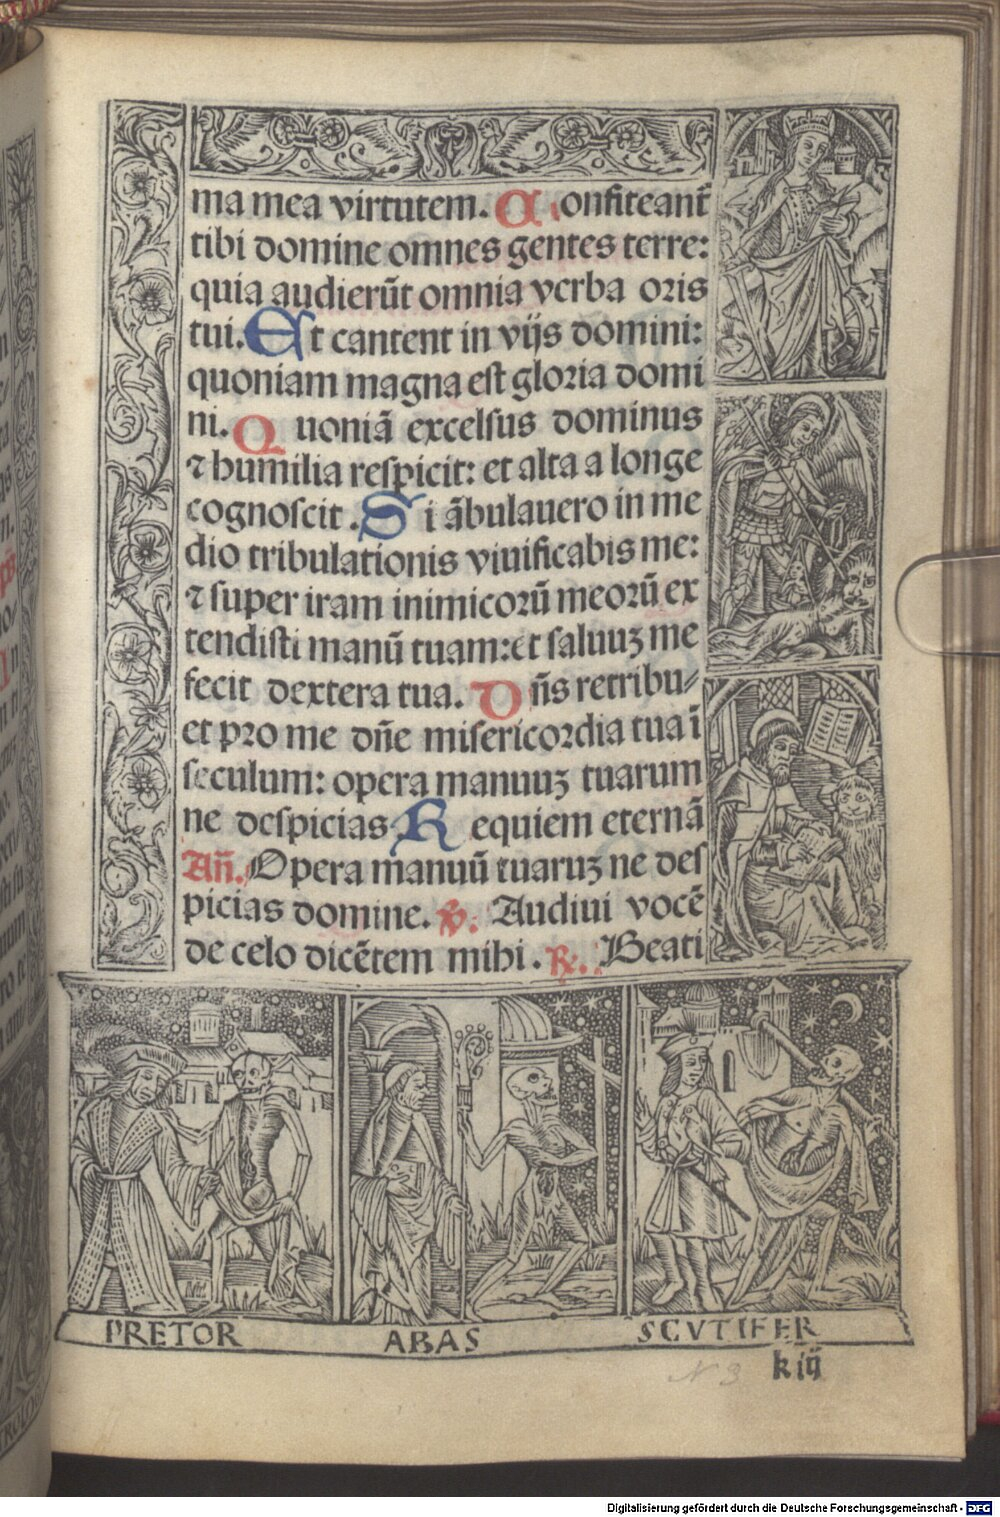 ma mea virtutem. Confiteant᷑
tibi domine omnes gentes terre:
quia audierūt omnia verba oris
tui. Et cantent in vijs domini:
quoniam magna est gloria domi
ni. Quoniā excelsus dominus
⁊ humilia respicit: et alta a longe
cognoscit. Si ābulauero in me
dio tribulationis viuificabis me:
⁊ super iram inimicorū meorū ex
tendisti manū tuam: et saluuꝫ me
fecit dextera tua. Dn̄s retribu⸗
et pro me dn̄e misericordia tua ī
seculum: opera manuuꝫ tuarum
ne despicias Requiem eternā
An̄. Opera manuū tuaruꝫ ne des
picias domine. ℣. Audiui vocē
de celo dicētem mihi. ℟. Beati
PRETOR ABAS SCVTIFER
k iij
N 3
Digitalisierung gefördert durch die Deutsche Forschungsgemeinschaft - DFG